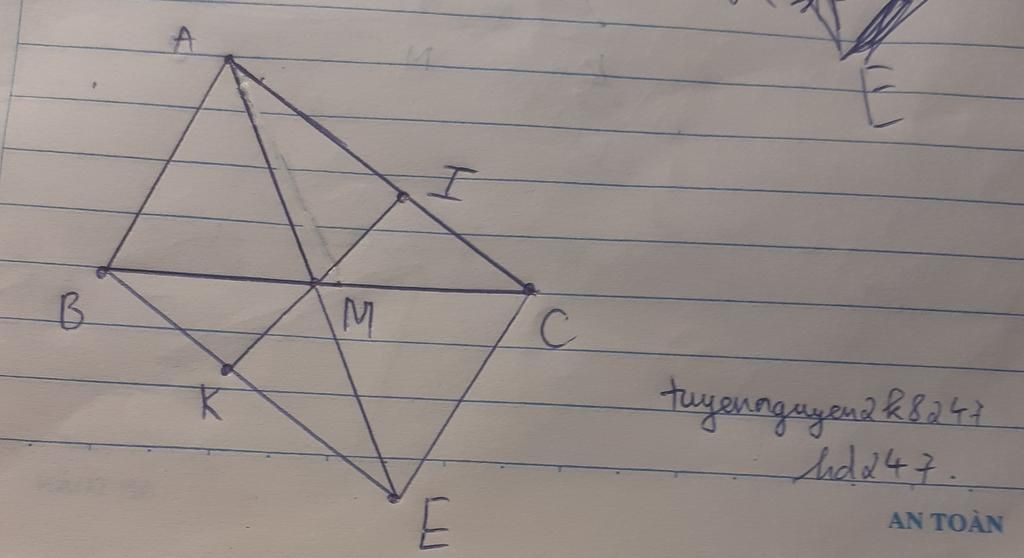 A
E
I
B
M
C
K
tuyennguyen2k8247
hd247.
E
AN TOÀN